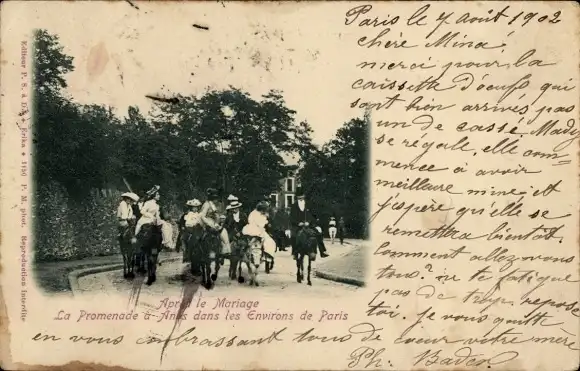 Paris le 7 août 1902
chère Mina,
merci pour la
caissette d'oeufs qui
sont bien arrivés pas
un de cassé. Mady
se régale, elle com-
mence à avoir
meilleure mine, et
j'espère qu'elle se
remettra bientôt.
Comment allez-vous
tous? ne te fatigue
pas de trop, repose
toi. je vous quitte
en vous embrassant tous de coeur votre mère
Ph. Bader
Après le Mariage
La Promenade à Anes dans les Environs de Paris
Editeur P. S. à D. Erika 1150 P. M. phot. Reproduction interdite